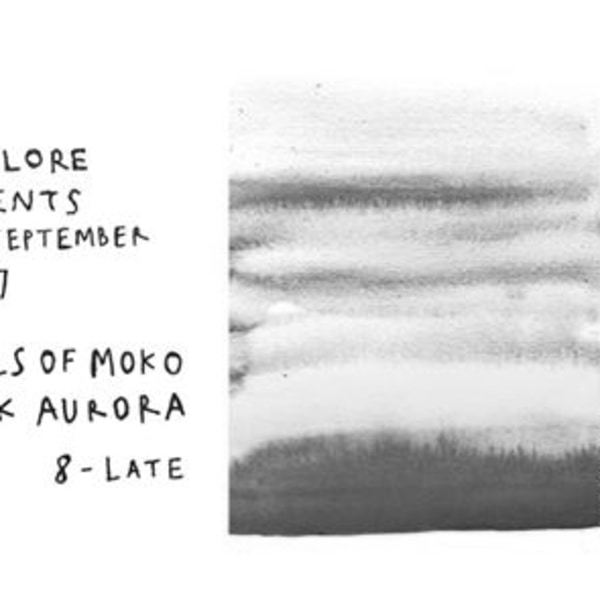 LORE
ENTS
SEPTEMBER
7
LS OF MOKO
K AURORA
8-LATE